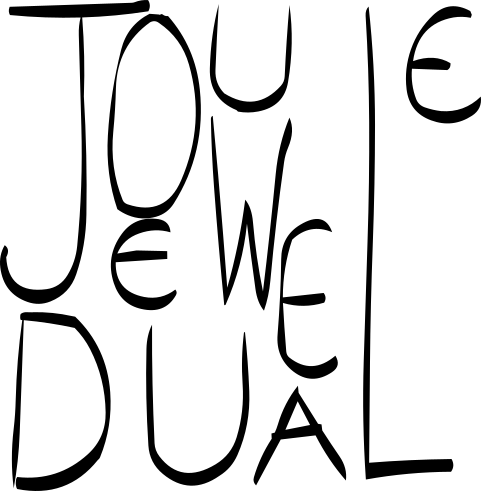 JOULE
JEWEL
DUAL